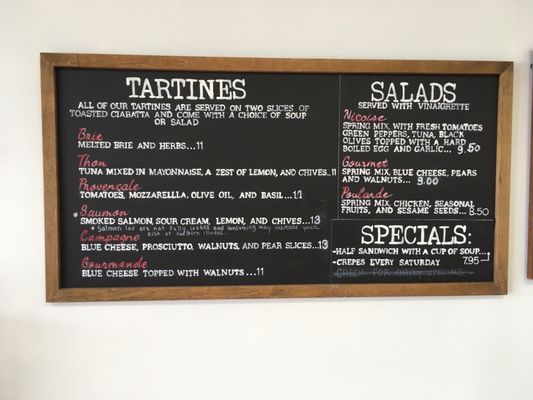 TARTINES
ALL OF OUR TARTINES ARE SERVED ON TWO SLICES OF
TOASTED CIABATTA AND COME WITH A CHOICE OF SOUP
OR SALAD
Brie
MELTED BRIE AND HERBS...11
Thon
TUNA MIXED IN MAYONNAISE, A ZEST OF LEMON, AND CHIVES..11
Provençale
TOMATOES, MOZZARELLLA, OLIVE OIL, AND BASIL...11
* Saumon
SMOKED SALMON, SOUR CREAM, LEMON, AND CHIVES...13
* Salmon lox are not fully cooked and consuming may increase your
risk of foodborn illness.
Campagne
BLUE CHEESE, PROSCIUTTO, WALNUTS, AND PEAR SLICES...13
Gourmande
BLUE CHEESE TOPPED WITH WALNUTS...11
SALADS
SERVED WITH VINAIGRETTE
Nicoise
SPRING MIX, WITH FRESH TOMATOES
GREEN PEPPERS, TUNA, BLACK
OLIVES TOPPED WITH A HARD
BOILED EGG AND GARLIC... 9.50
Gourmet
SPRING MIX, BLUE CHEESE, PEARS
AND WALNUTS... 9.00
Poularde
SPRING MIX, CHICKEN, SEASONAL
FRUITS, AND SESAME SEEDS...8.50
SPECIALS:
-HALF SANDWICH WITH A CUP OF SOUP...
-CREPES EVERY SATURDAY 7.95
CHECK FOR DAILY SPECIALS